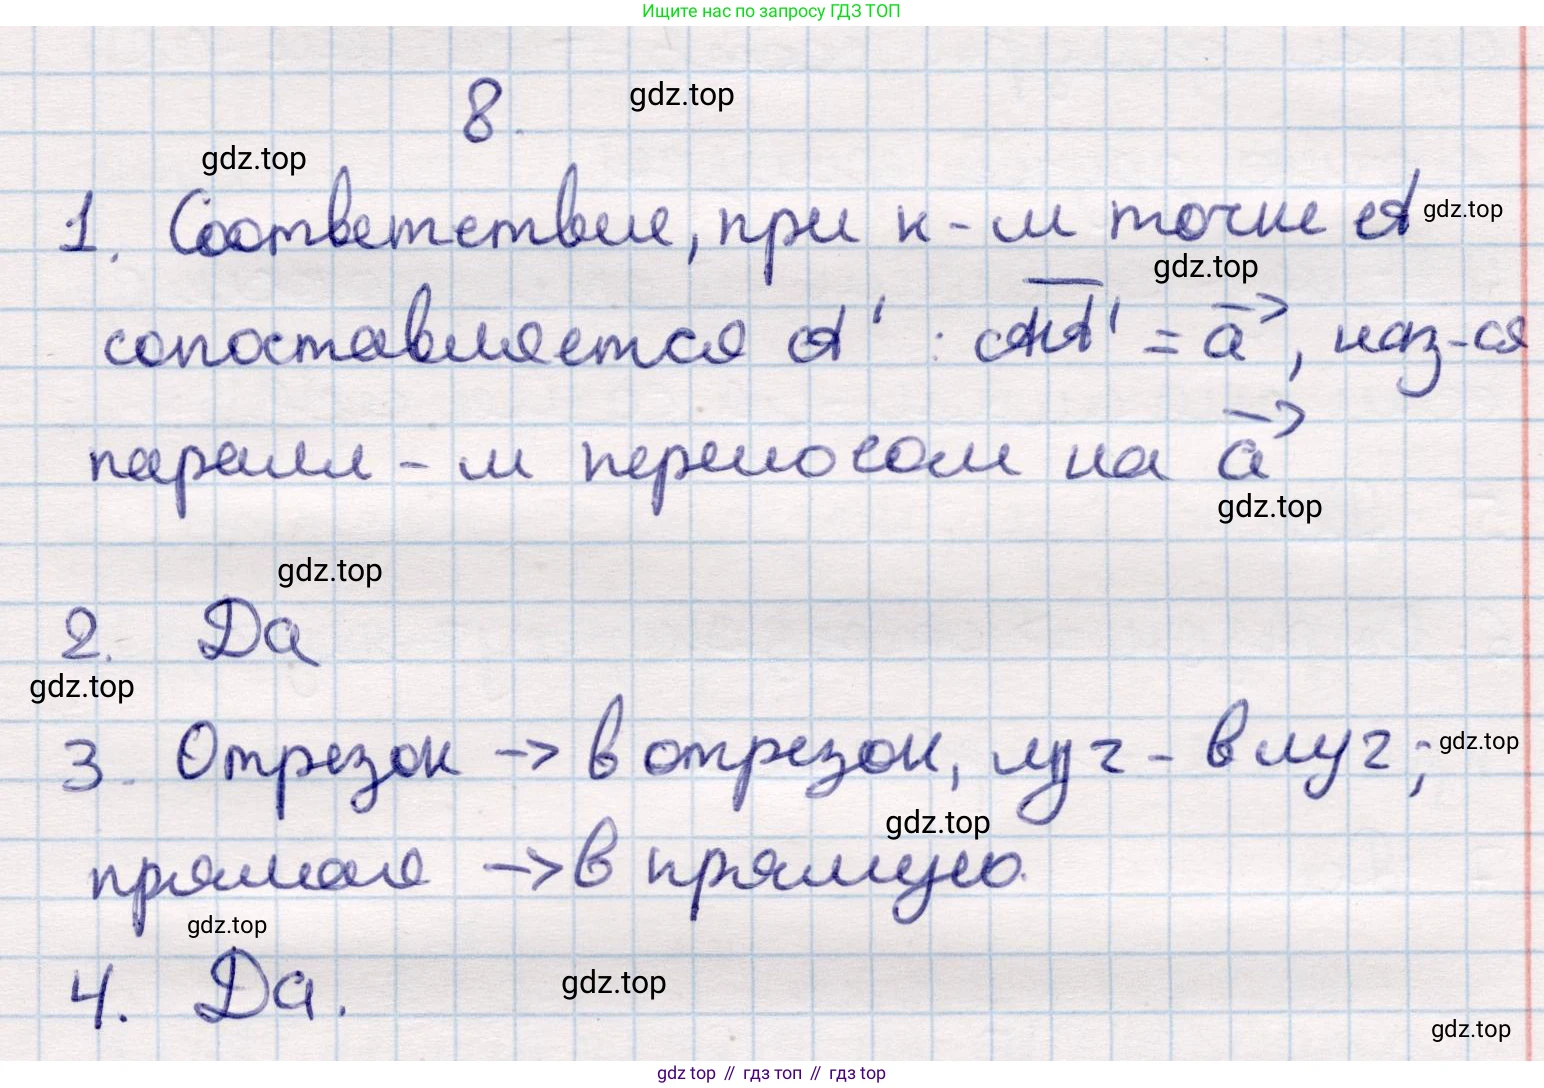 Ищите нас по запросу ГДЗ ТОП
8.
gdz.top
gdz.top
1. Соответствие, при к-м точке A
gdz.top
gdz.top
сопоставляется A' : AA' = a, наз-ся
паралл-м переносом на a
gdz.top
gdz.top
2. Да
gdz.top
3. Отрезок → в отрезок, луч - в луч;
gdz.top
gdz.top
прямая → в прямую.
gdz.top
4. Да.
gdz.top
gdz.top
gdz top // гдз топ // гдз top